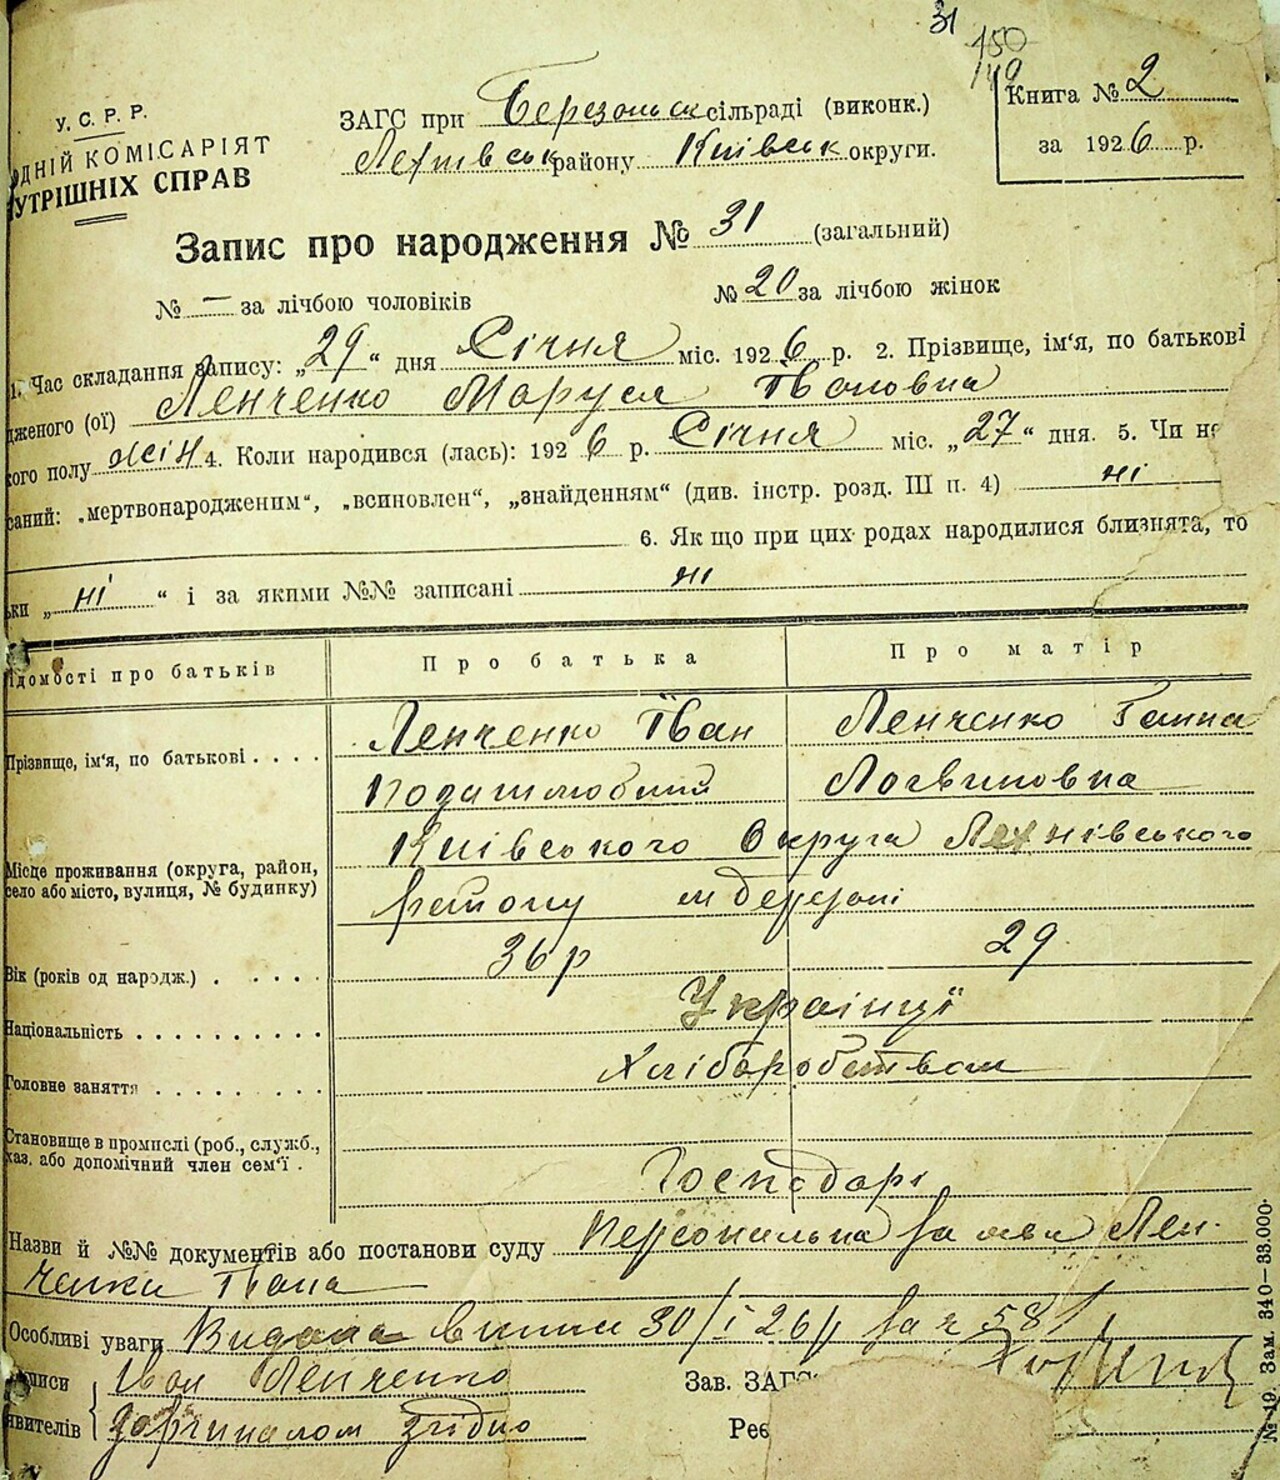 31
150
149
У. С. Р. Р.
ДНІЙ КОМІСАРІЯТ
УТРІШНІХ СПРАВ
ЗАГС при Березольск сільраді (виконк.)
району Київськ округи.
Книга № 2
за 1926 р.
Запис про народження № 31 (загальний)
№ — за лічбою чоловіків № 20 за лічбою жінок
1. Час складання запису: „29“ дня Січня міс. 1926 р. 2. Прізвище, ім'я, по батькові
дженого (ої) Ленченко Маруся Івановна
кого полу жін 4. Коли народився (лась): 1926 р. Січня міс. „27“ дня. 5. Чи не
саний: „мертвонародженим“, „всиновлен“, „знайденням“ (див. інстр. розд. III п. 4) ні
6. Як що при цих родах народилися близнята, то
ьки „ні“ і за якими №№ записані ні
ідомості про батьків Про батька Про матір
Прізвище, ім'я, по батькові . . . . Ленченко Іван Ленченко Ганна
Логвиновна
Місце проживання (округа, район, село або місто, вулиця, № будинку) Київського Округа
району м Березані
Вік (років од народж.) . . . . . 36 р 29
Національність . . . . . . . . . . Українці
Головне заняття . . . . . . . . Хліборобством
Становище в промислі (роб., служб.,
хаз. або допомічний член сем'ї . Господарі
Назви й №№ документів або постанови суду Персональна заява Лен-
ченки Івана
Особливі уваги Видана випис 30/І 26 р за ч 581
писи Іван Ленченко Зав. ЗАГС
явителів з оригиналом згідно Реє
№ 19. Зам. 340—33.000.